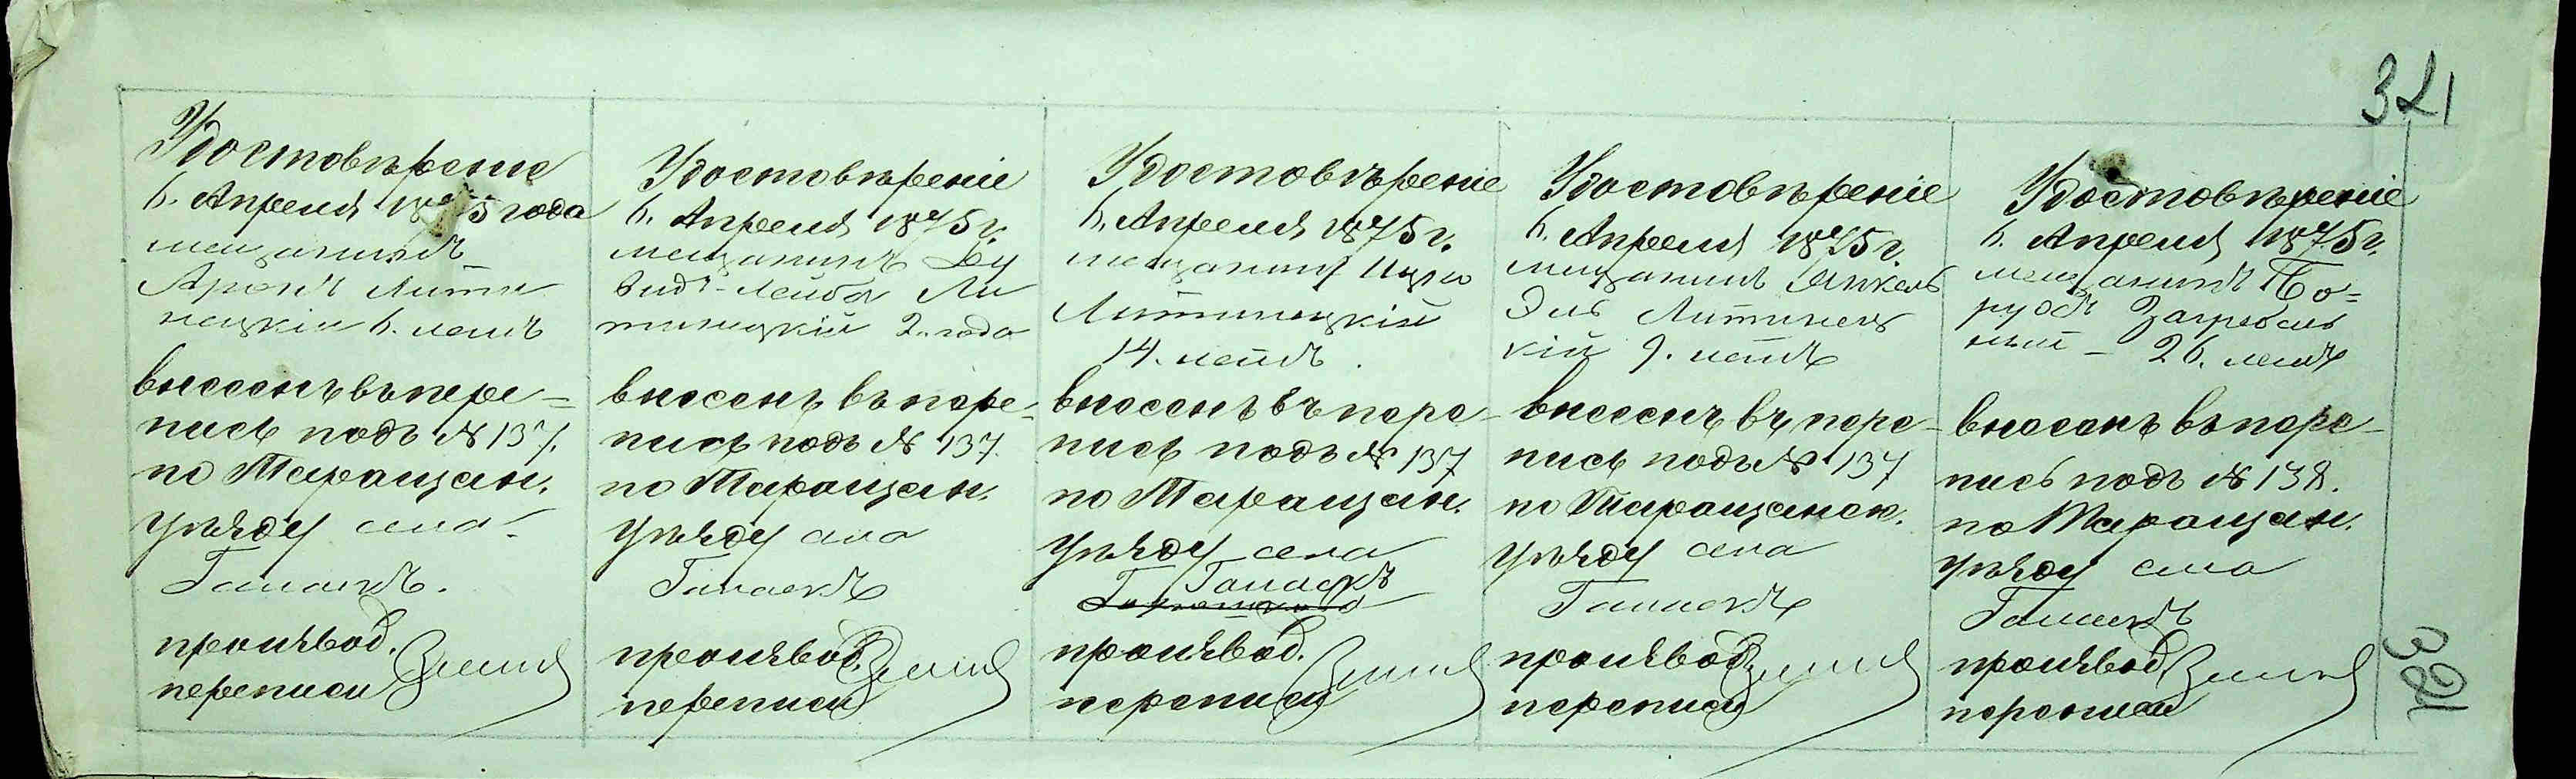 321
Удостовѣреніе
6. Апреля 1875 года
мещанинъ
Аронъ Лити
нецкій 6. летъ
внесенъ въ пере=
пись подъ № 137.
по Таращан.
уѣзду села
производ.
переписи
Удостовѣреніе
6. Апреля 1875 г.
мещанинъ Ду
видъ-Лейба Ли
тинецкій 2. года
внесенъ въ пере-
пись подъ № 137.
по Таращан.
уѣзду села
производ.
переписи
Удостовѣреніе
6. Апреля 1875 г.
мещанинъ Ицко
Литинецкій
14. летъ.
внесенъ въ пере-
пись подъ № 137
по Таращан.
уѣзду села
производ.
переписи
Удостовѣреніе
6. Апреля 1875 г.
мещанинъ Янкель
Эль Литинец
кій 9. летъ
внесенъ въ пере-
пись подъ № 137
по Таращанск.
уѣзду села
производ.
переписи
Удостовѣреніе
6. Апреля 1875 г.
мещанинъ Бо=
рухъ Загребель
ный - 26. летъ
внесенъ въ пере-
пись подъ № 138.
по Таращан.
уѣзду села
производ.
переписи
321